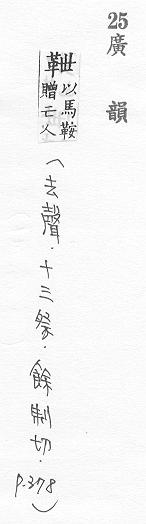 25廣韻
靾 以馬鞍贈亡人
(去聲．十三祭．餘制切．P.378)